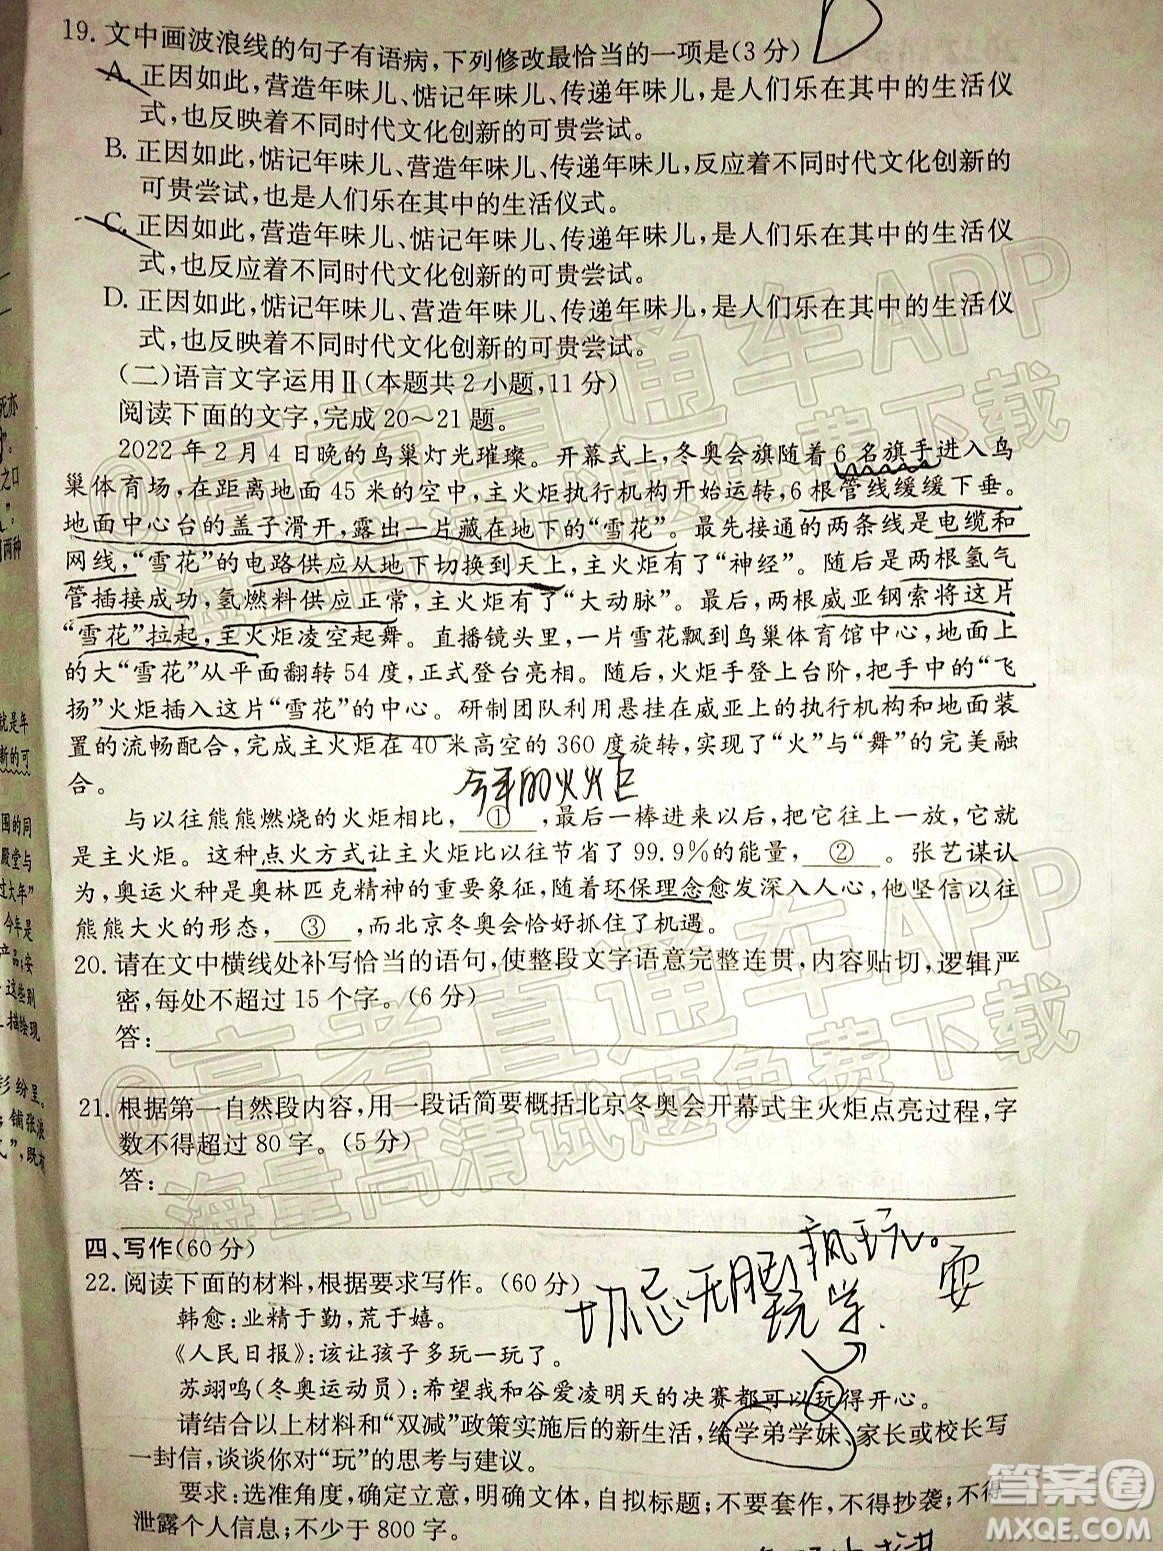 19. 文中画波浪线的句子有语病,下列修改最恰当的一项是(3分) D
A. 正因如此,营造年味儿、惦记年味儿、传递年味儿,是人们乐在其中的生活仪
式,也反映着不同时代文化创新的可贵尝试。
B. 正因如此,惦记年味儿、营造年味儿、传递年味儿,反应着不同时代文化创新的
可贵尝试,也是人们乐在其中的生活仪式。
C. 正因如此,营造年味儿、惦记年味儿、传递年味儿,是人们乐在其中的生活仪
式,也反应着不同时代文化创新的可贵尝试。
D. 正因如此,惦记年味儿、营造年味儿、传递年味儿,是人们乐在其中的生活仪
式,也反映着不同时代文化创新的可贵尝试。
(二)语言文字运用Ⅱ(本题共2小题,11分)
阅读下面的文字,完成20~21题。
2022年2月4日晚的鸟巢灯光璀璨。开幕式上,冬奥会旗随着6名旗手进入鸟
巢体育场,在距离地面45米的空中,主火炬执行机构开始运转,6根管线缓缓下垂。
地面中心台的盖子滑开,露出一片藏在地下的“雪花”。最先接通的两条线是电缆和
网线,“雪花”的电路供应从地下切换到天上,主火炬有了“神经”。随后是两根氢气
管插接成功,氢燃料供应正常,主火炬有了“大动脉”。最后,两根威亚钢索将这片
“雪花”拉起,主火炬凌空起舞。直播镜头里,一片雪花飘到鸟巢体育馆中心,地面上
的大“雪花”从平面翻转54度,正式登台亮相。随后,火炬手登上台阶,把手中的“飞
扬”火炬插入这片“雪花”的中心。研制团队利用悬挂在威亚上的执行机构和地面装
置的流畅配合,完成主火炬在40米高空的360度旋转,实现了“火”与“舞”的完美融
合。
今年的火炬
与以往熊熊燃烧的火炬相比, ① ,最后一棒进来以后,把火炬放在中心,它就
是主火炬。这种点火方式让主火炬比以往节省了99.9%的能量, ② 。张艺谋认
为,奥运火种是奥林匹克精神的重要象征,随着环保理念愈发深入人心,他坚信以往
熊熊大火的形态, ③ ,而北京冬奥会恰好抓住了机遇。
20. 请在文中横线处补写恰当的语句,使整段文字语意完整连贯,内容贴切,逻辑严
密,每处不超过15个字。(6分)
答:
21. 根据第一自然段内容,用一段话简要概括北京冬奥会开幕式主火炬点亮过程,字
数不得超过80字。(5分)
答:
四、写作(60分)
22. 阅读下面的材料,根据要求写作。(60分)
疯玩。
切忌无
玩 学 耍
韩愈:业精于勤,荒于嬉。
《人民日报》:该让孩子多玩一玩了。
苏翊鸣(冬奥运动员):希望我和谷爱凌明天的决赛都可以玩得开心。
请结合以上材料和“双减”政策实施后的新生活,给学弟学妹、家长或校长写
一封信,谈谈你对“玩”的思考与建议。
要求:选准角度,确定立意,明确文体,自拟标题;不要套作,不得抄袭;不得
泄露个人信息;不少于800字。
死亦
之口
两种
就是年
新的可
围的同
殿堂与
过大年”
今年是
产品;安
这些别
描绘现
彩纷呈。
铺张浪
”,既有
@高考直通车APP
海量高清试题免费下载
@高考直通车APP
海量高清试题免费下载
答案圈
MXQE.COM